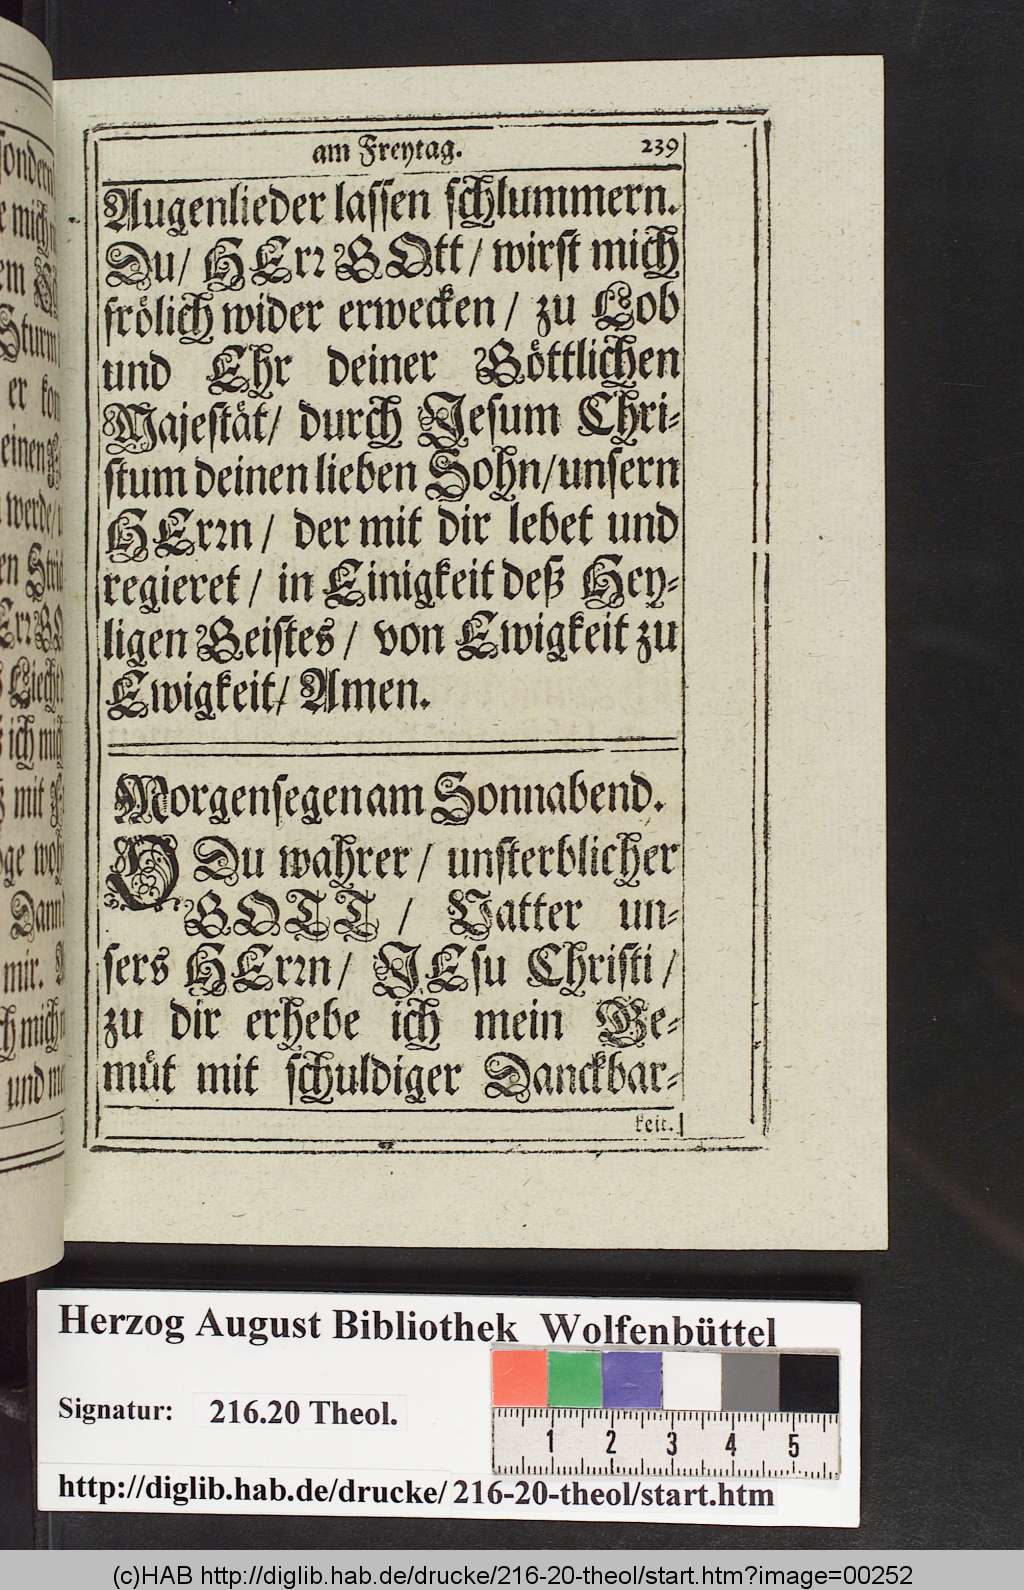 am Freytag. 239
Augenlieder lassen schlummern.
Du/ HErꝛ GOtt/ wirst mich
frölich wider erwecken / zu Lob
und Ehr deiner Göttlichen
Majestät/ durch Jesum Chri-
stum deinen lieben Sohn/unsern
HErꝛn / der mit dir lebet und
regieret / in Einigkeit deß Hey-
ligen Geistes / von Ewigkeit zu
Ewigkeit/ Amen.
Morgensegen am Sonnabend.
O Du wahrer / unsterblicher
GOTT / Vatter un-
sers HErꝛn/ JEsu Christi /
zu dir erhebe ich mein Ge-
müt mit schuldiger Danckbar-
keit.
sondern
mich
Sturm
er
einen
werde/
ich
mit
mir.
und
Herzog August Bibliothek Wolfenbüttel
Signatur: 216.20 Theol.
1 2 3 4 5
http://diglib.hab.de/drucke/216-20-theol/start.htm
(c)HAB http://diglib.hab.de/drucke/216-20-theol/start.htm?image=00252